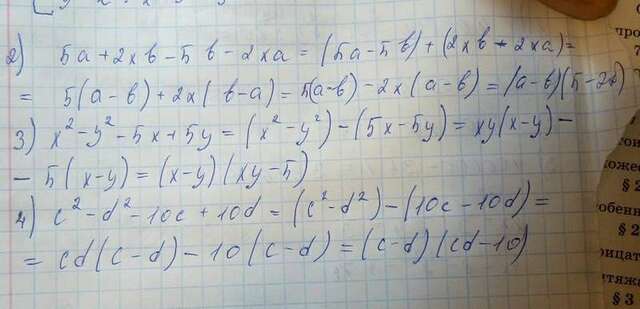 2) 5a+2xb-5b-2xa=(5a-5b)+(2xb-2xa)=
= 5(a-b)+2x(b-a)=5(a-b)-2x(a-b)=(a-b)(5-2x)
3) x²-y²-5x+5y=(x²-y²)-(5x-5y)=xy(x-y)-
-5(x-y)=(x-y)(xy-5)
4) c²-d²-10c+10d=(c²-d²)-(10c-10d)=
= cd(c-d)-10(c-d)=(c-d)(cd-10)
про
7
§ 2
§ 2
§ 3